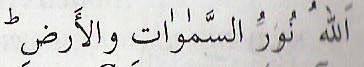 اَللهُ نُورُ السَّمٰوٰاتِ والأَرضِ ؕ